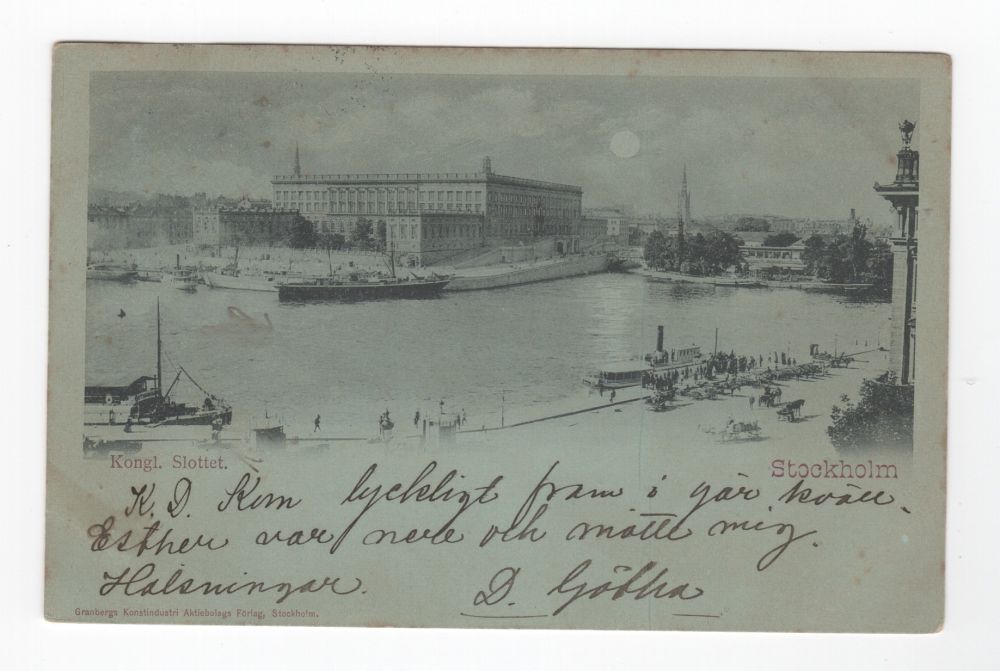 Kongl. Slottet.
Stockholm
K. D. Kom lyckligt fram i går kväll.
Esther var nere och mötte mig.
Hälsningar. D. Göbha
Granbergs Konstindustri Aktiebolags Förlag, Stockholm.